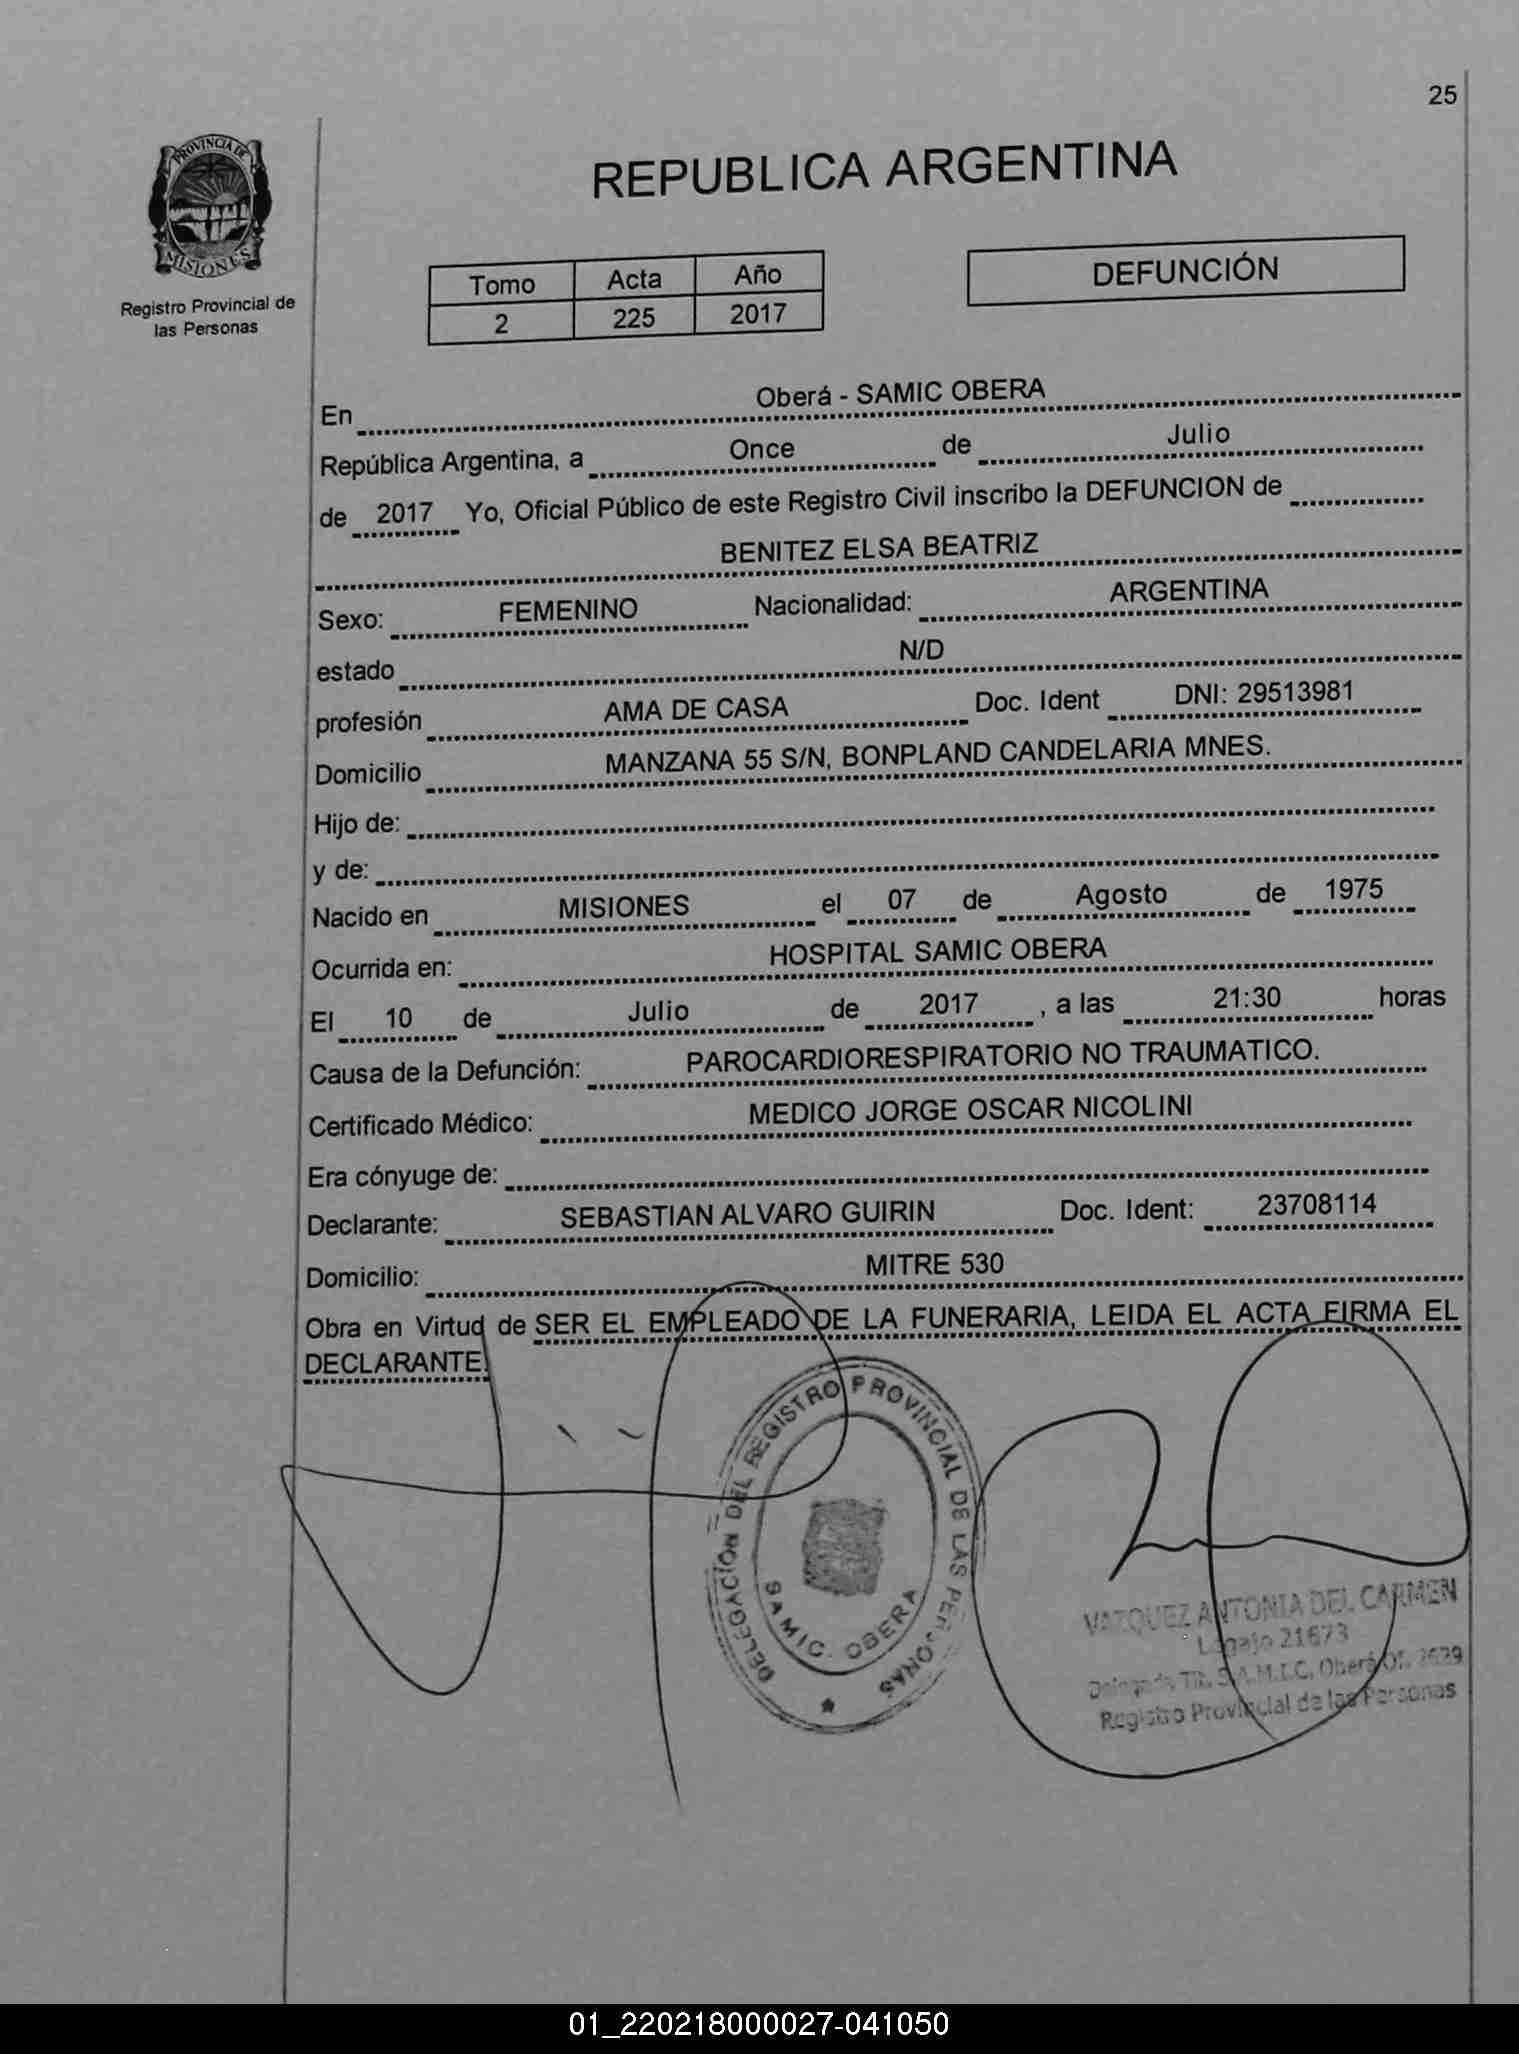 25
PROVINCIA DE
MISIONES
Registro Provincial de
las Personas
REPUBLICA ARGENTINA
Tomo Acta Año
2 225 2017
DEFUNCIÓN
En Oberá - SAMIC OBERA
República Argentina, a Once de Julio
de 2017 Yo, Oficial Público de este Registro Civil inscribo la DEFUNCION de
BENITEZ ELSA BEATRIZ
Sexo: FEMENINO Nacionalidad: ARGENTINA
estado N/D
profesión AMA DE CASA Doc. Ident DNI: 29513981
Domicilio MANZANA 55 S/N, BONPLAND CANDELARIA MNES.
Hijo de:
y de:
Nacido en MISIONES el 07 de Agosto de 1975
Ocurrida en: HOSPITAL SAMIC OBERA
El 10 de Julio de 2017 , a las 21:30 horas
Causa de la Defunción: PAROCARDIORESPIRATORIO NO TRAUMATICO.
Certificado Médico: MEDICO JORGE OSCAR NICOLINI
Era cónyuge de:
Declarante: SEBASTIAN ALVARO GUIRIN Doc. Ident: 23708114
Domicilio: MITRE 530
Obra en Virtud de SER EL EMPLEADO DE LA FUNERARIA, LEIDA EL ACTA FIRMA EL
DECLARANTE.
DELEGACION DEL REGISTRO PROVINCIAL DE LAS PERSONAS
SAMIC. OBERA
VAZQUEZ ANTONIA DEL CARMEN
Legajo 21673
S.A.M.I.C. Oberá Of. 2639
Registro Provincial de las Personas
01_220218000027-041050